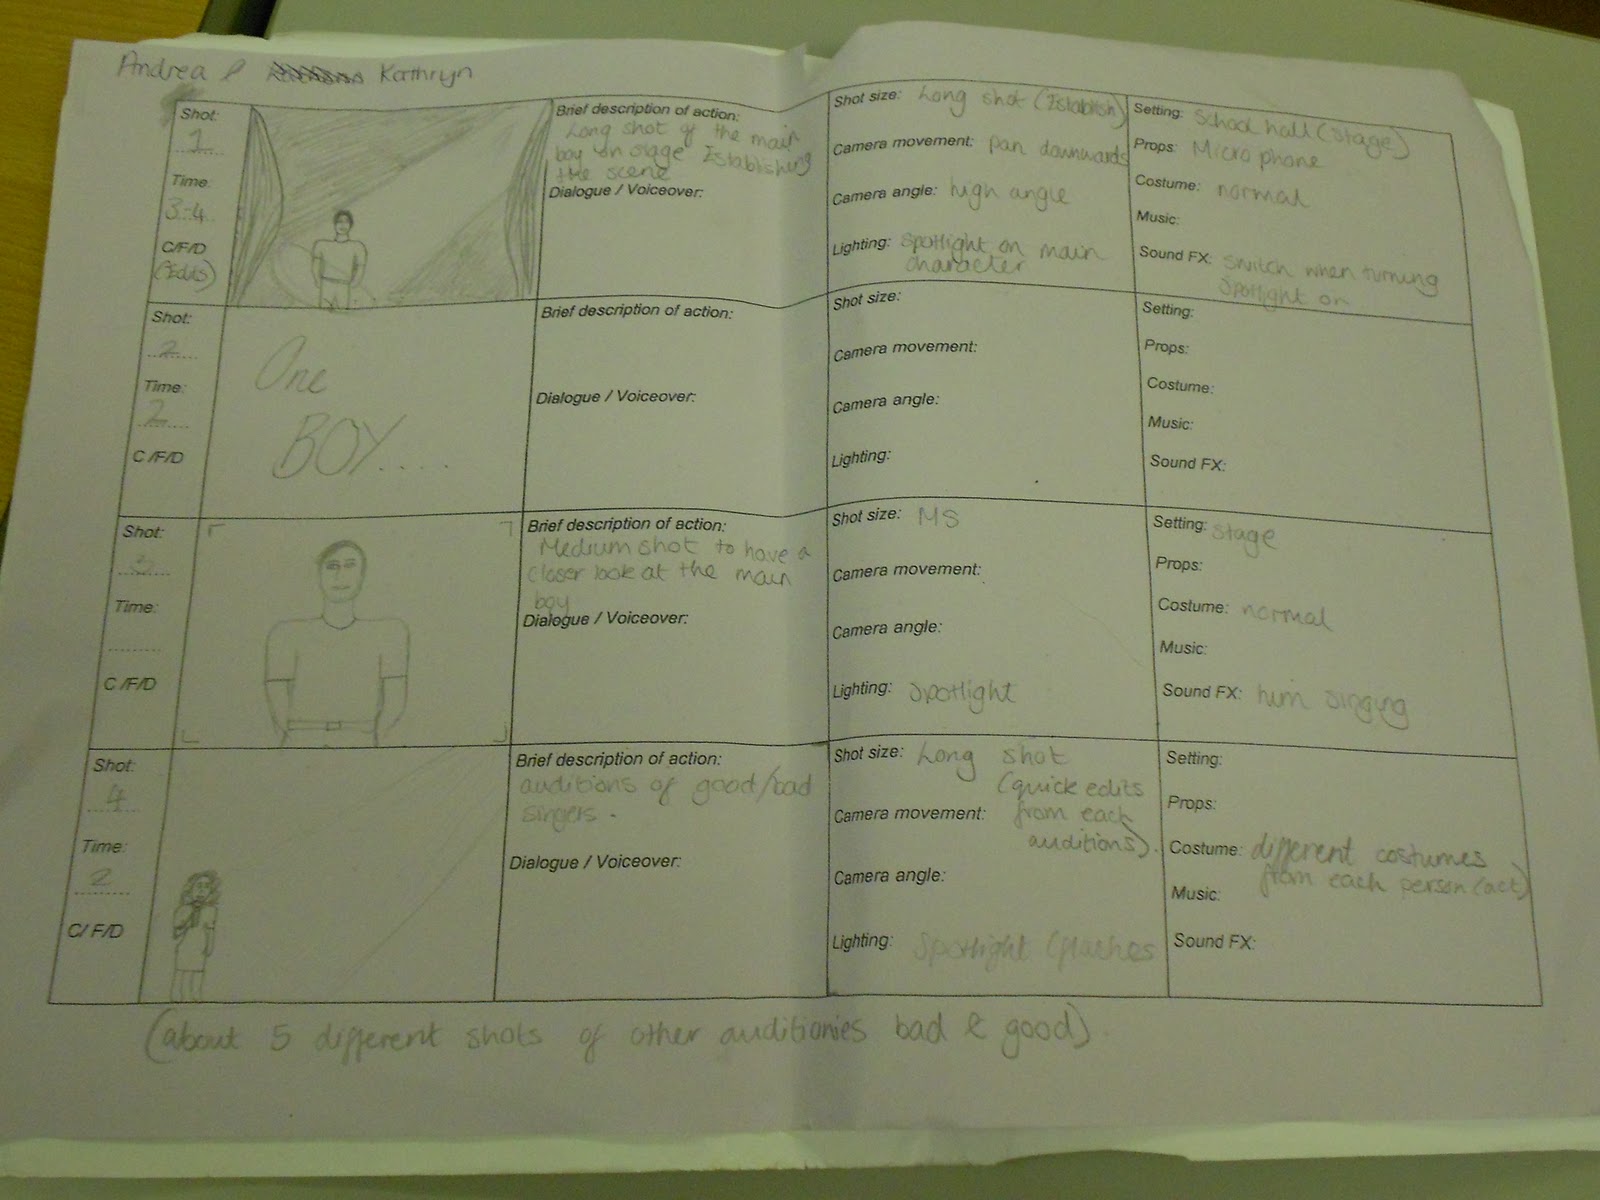 Andrea & Kathryn
Shot:
1
Time:
3-4
C/F/D
(Fades)
Brief description of action:
Long shot of the main
boy on stage Establishing
the scene
Dialogue / Voiceover:
Shot size: Long shot (Establish)
Camera movement: pan downwards
Camera angle: high angle
Lighting: Spotlight on main
character
Setting: School hall (stage)
Props: Microphone
Costume: normal
Music:
Sound FX: switch when turning
spotlight on
Shot:
2
Time:
2
C /F/D
One
BOY....
Brief description of action:
Dialogue / Voiceover:
Shot size:
Camera movement:
Camera angle:
Lighting:
Setting:
Props:
Costume:
Music:
Sound FX:
Shot:
3
Time:
C /F/D
Brief description of action:
Medium shot to have a
closer look at the main
boy
Dialogue / Voiceover:
Shot size: MS
Camera movement:
Camera angle:
Lighting: Spotlight
Setting: stage
Props:
Costume: normal
Music:
Sound FX: him singing
Shot:
4
Time:
2
C/ F/D
Brief description of action:
auditions of good/bad
singers.
Dialogue / Voiceover:
Shot size: Long shot
(quick edits
Camera movement: from each
auditions).
Camera angle:
Lighting: Spotlight (flashes
Setting:
Props:
Costume: different costumes
from each person (act)
Music:
Sound FX:
(about 5 different shots of other auditionies bad & good)